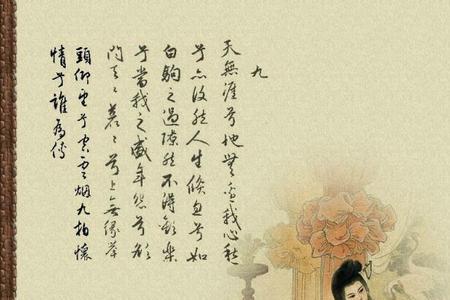 九
天無涯兮地無邊我心愁
兮亦復然人生倏忽兮如
白駒之過隙然不得歡樂
兮當我之盛年怨兮欲
問天〻蒼〻兮上無緣舉
頭仰望兮空雲烟九拍懷
情兮誰為傳